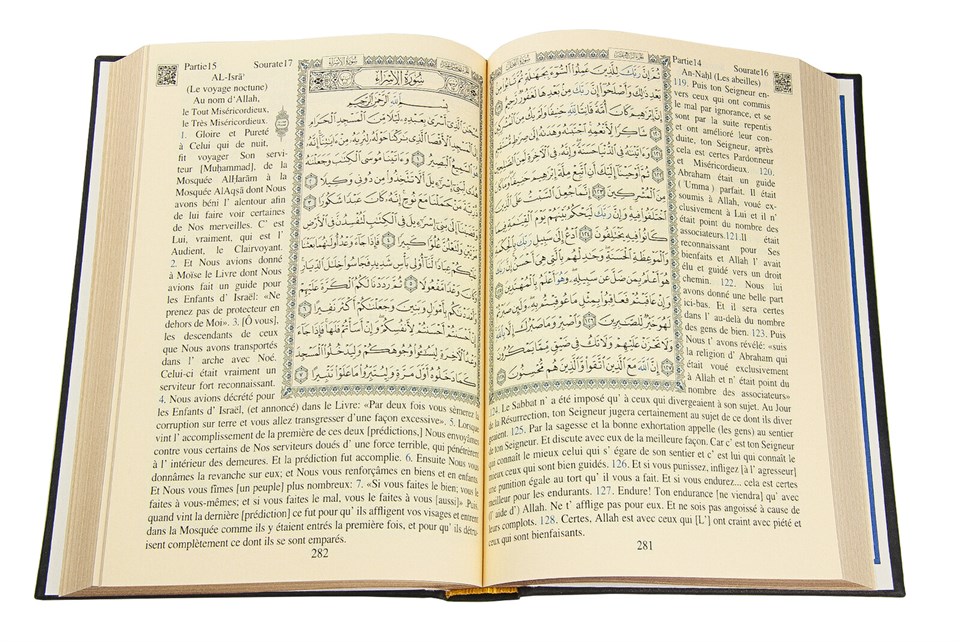 Partie14 Sourate16
An-Naḥl (Les abeilles)
119. Puis ton Seigneur en-
vers ceux qui ont commis
le mal par ignorance, et se
sont par la suite repentis
et ont amélioré leur con-
duite, ton Seigneur, après
cela est certes Pardonneur
et Miséricordieux. 120.
Abraham était un guide
('Umma) parfait. Il était
soumis à Allah, voué ex-
clusivement à Lui et il n'
était point du nombre des
associateurs.121.Il était
reconnaissant pour Ses
bienfaits et Allah l' avait
élu et guidé vers un droit
chemin. 122. Nous lui
avons donné une belle part
ici-bas. Et il sera certes
dans l' au-delà du nombre
des gens de bien. 123. Puis
Nous t' avons révélé: «suis
la religion d' Abraham qui
était voué exclusivement
à Allah et n' était point du
nombre des associateurs»
ثُمَّ إِنَّ رَبَّكَ لِلَّذِينَ عَمِلُوا۟ ٱلسُّوٓءَ بِجَهَٰلَةٍ ثُمَّ تَابُوا۟
بَعْدِ ذَٰلِكَ وَأَصْلَحُوٓا۟ إِنَّ رَبَّكَ مِنۢ بَعْدِهَا لَغَفُورٌ
إِنَّ إِبْرَٰهِيمَ كَانَ أُمَّةً قَانِتًا لِّلَّهِ حَنِيفًا وَلَمْ يَكُ
شَاكِرًا لِّأَنْعُمِهِ ٱجْتَبَىٰهُ وَهَدَىٰهُ إِلَىٰ صِرَٰطٍ
وَءَاتَيْنَٰهُ فِى ٱلدُّنْيَا حَسَنَةً وَإِنَّهُۥ فِى ٱلْءَاخِرَةِ لَمِنَ
ثُمَّ أَوْحَيْنَآ إِلَيْكَ أَنِ ٱتَّبِعْ مِلَّةَ إِبْرَٰهِيمَ حَنِيفًا وَمَا
مِنَ ٱلْمُشْرِكِينَ ١٢٣ إِنَّمَا جُعِلَ ٱلسَّبْتُ عَلَى ٱلَّذِينَ
ٱخْتَلَفُوا۟ فِيهِ وَإِنَّ رَبَّكَ لَيَحْكُمُ بَيْنَهُمْ يَوْمَ ٱلْقِيَٰمَةِ
كَانُوا۟ فِيهِ يَخْتَلِفُونَ ١٢٤ ٱدْعُ إِلَىٰ سَبِيلِ رَبِّكَ بِٱلْحِكْمَةِ
وَٱلْمَوْعِظَةِ ٱلْحَسَنَةِ وَجَٰدِلْهُم بِٱلَّتِى هِىَ أَحْسَنُ إِنَّ رَبَّكَ
هُوَ أَعْلَمُ بِمَن ضَلَّ عَن سَبِيلِهِۦ وَهُوَ أَعْلَمُ بِٱلْمُهْتَدِينَ
وَإِنْ عَاقَبْتُمْ فَعَاقِبُوا۟ بِمِثْلِ مَا عُوقِبْتُم بِهِۦ وَلَئِن صَبَرْتُمْ
لَهُوَ خَيْرٌ لِّلصَّٰبِرِينَ ١٢٦ وَٱصْبِرْ وَمَا صَبْرُكَ إِلَّا بِٱللَّهِ
وَلَا تَحْزَنْ عَلَيْهِمْ وَلَا تَكُ فِى ضَيْقٍ مِّمَّا يَمْكُرُونَ
١٢٧ إِنَّ ٱللَّهَ مَعَ ٱلَّذِينَ ٱتَّقَوا۟ وَّٱلَّذِينَ هُم مُّحْسِنُونَ ١٢٨
124. Le Sabbat n' a été imposé qu' à ceux qui divergeaient à son sujet. Au Jour
de la Résurrection, ton Seigneur jugera certainement au sujet de ce dont ils diver-
geaient. 125. Par la sagesse et la bonne exhortation appelle (les gens) au sentier
de ton Seigneur. Et discute avec eux de la meilleure façon. Car c' est ton Seigneur
qui connaît le mieux celui qui s' égare de son sentier et c' est lui qui connaît le
mieux ceux qui sont bien guidés. 126. Et si vous punissez, infligez [à l' agresseur]
une punition égale au tort qu' il vous a fait. Et si vous endurez... cela est certes
meilleur pour les endurants. 127. Endure! Ton endurance [ne viendra] qu' avec
(l' aide d') Allah. Ne t' afflige pas pour eux. Et ne sois pas angoissé à cause de
leurs complots. 128. Certes, Allah est avec ceux qui [L'] ont craint avec piété et
ceux qui sont bienfaisants.
281
Partie15 Sourate17
AL-Isrā'
(Le voyage noctune)
Au nom d'Allah,
le Tout Miséricordieux,
le Très Miséricordieux.
1. Gloire et Pureté
à Celui qui de nuit,
fit voyager Son servi-
teur [Muḥammad], de la
Mosquée AlḤarām à la
Mosquée AlAqṣā dont Nous
avons béni l' alentour afin
de lui faire voir certaines
de Nos merveilles. C' est
Lui, vraiment, qui est l'
Audient, le Clairvoyant.
2. Et Nous avions donné
à Moïse le Livre dont Nous
avions fait un guide pour
les Enfants d' Israël: «Ne
prenez pas de protecteur en
dehors de Moi». 3. [Ô vous],
les descendants de ceux
que Nous avons transportés
dans l' arche avec Noé.
Celui-ci était vraiment un
serviteur fort reconnaissant.
4. Nous avions décrété pour
سُورَةُ الإِسْرَاءِ
بِسْمِ ٱللَّهِ ٱلرَّحْمَٰنِ ٱلرَّحِيمِ
سُبْحَٰنَ ٱلَّذِىٓ أَسْرَىٰ بِعَبْدِهِۦ لَيْلًا مِّنَ ٱلْمَسْجِدِ ٱلْحَرَامِ
إِلَى ٱلْمَسْجِدِ ٱلْأَقْصَا ٱلَّذِى بَٰرَكْنَا حَوْلَهُۥ لِنُرِيَهُۥ مِنْ ءَايَٰتِنَآ إِنَّهُۥ
هُوَ ٱلسَّمِيعُ ٱلْبَصِيرُ ١ وَءَاتَيْنَا مُوسَى ٱلْكِتَٰبَ وَجَعَلْنَٰهُ
هُدًى لِّبَنِىٓ إِسْرَٰٓءِيلَ أَلَّا تَتَّخِذُوا۟ مِن دُونِى وَكِيلًا ٢
ذُرِّيَّةَ مَنْ حَمَلْنَا مَعَ نُوحٍ إِنَّهُۥ كَانَ عَبْدًا شَكُورًا ٣
وَقَضَيْنَآ إِلَىٰ بَنِىٓ إِسْرَٰٓءِيلَ فِى ٱلْكِتَٰبِ لَتُفْسِدُنَّ فِى ٱلْأَرْضِ
مَرَّتَيْنِ وَلَتَعْلُنَّ عُلُوًّا كَبِيرًا ٤ فَإِذَا جَآءَ وَعْدُ أُولَىٰهُمَا بَعَثْنَا
عَلَيْكُمْ عِبَادًا لَّنَآ أُو۟لِى بَأْسٍ شَدِيدٍ فَجَاسُوا۟ خِلَٰلَ ٱلدِّيَارِ
وَكَانَ وَعْدًا مَّفْعُولًا ٥ ثُمَّ رَدَدْنَا لَكُمُ ٱلْكَرَّةَ عَلَيْهِمْ
وَأَمْدَدْنَٰكُم بِأَمْوَٰلٍ وَبَنِينَ وَجَعَلْنَٰكُمْ أَكْثَرَ نَفِيرًا ٦
إِنْ أَحْسَنتُمْ أَحْسَنتُمْ لِأَنفُسِكُمْ وَإِنْ أَسَأْتُمْ فَلَهَا فَإِذَا جَآءَ
وَعْدُ ٱلْءَاخِرَةِ لِيَسُـۥٓـُٔوا۟ وُجُوهَكُمْ وَلِيَدْخُلُوا۟ ٱلْمَسْجِدَ
كَمَا دَخَلُوهُ أَوَّلَ مَرَّةٍ وَلِيُتَبِّرُوا۟ مَا عَلَوْا۟ تَتْبِيرًا ٧
les Enfants d' Israël, (et annoncé) dans le Livre: «Par deux fois vous sèmerez la
corruption sur terre et vous allez transgresser d'une façon excessive». 5. Lorsque
vint l' accomplissement de la première de ces deux [prédictions,] Nous envoyâmes
contre vous certains de Nos serviteurs doués d' une force terrible, qui pénétrèrent
à l' intérieur des demeures. Et la prédiction fut accomplie. 6. Ensuite Nous vous
donnâmes la revanche sur eux; et Nous vous renforçâmes en biens et en enfants
Et Nous vous fîmes [un peuple] plus nombreux: 7. «Si vous faites le bien; vous le
faites à vous-mêmes; et si vous faites le mal, vous le faites à vous [aussi]» Puis,
quand vint la dernière [prédiction] ce fut pour qu' ils affligent vos visages et entrent
dans la Mosquée comme ils y étaient entrés la première fois, et pour qu' ils détru-
isent complètement ce dont ils se sont emparés.
282